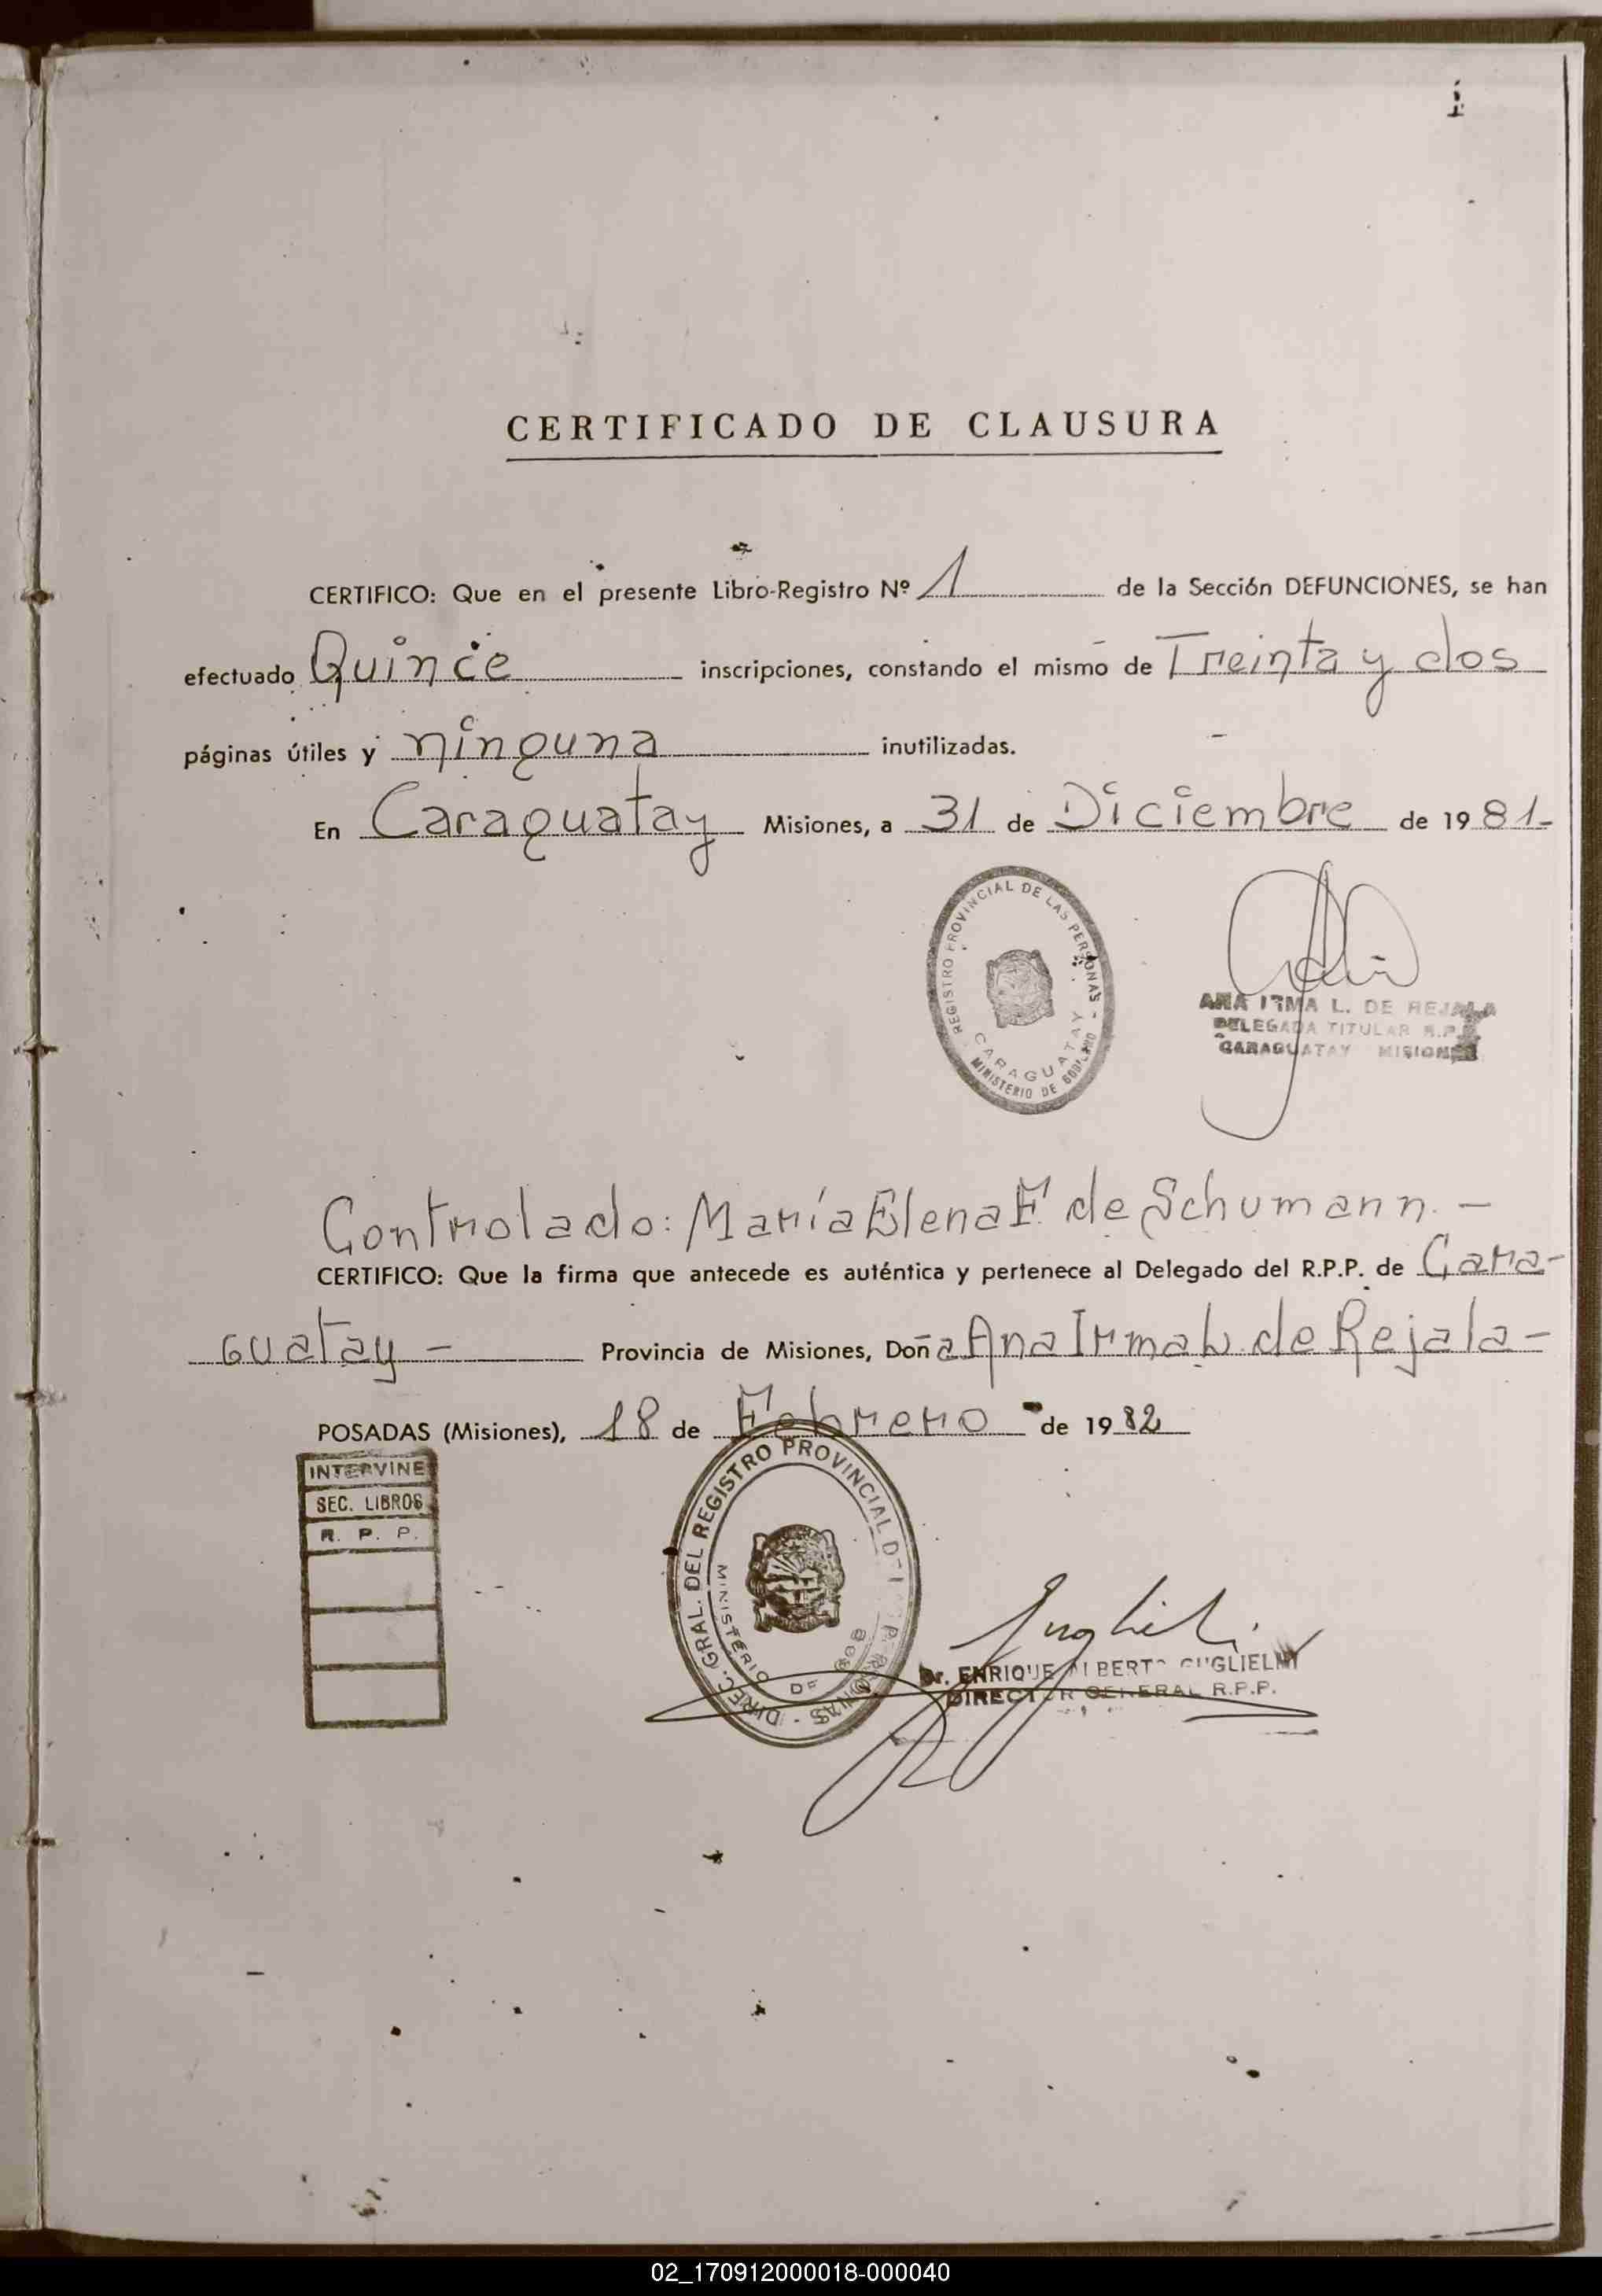 CERTIFICADO DE CLAUSURA
CERTIFICO: Que en el presente Libro-Registro Nº 1 de la Sección DEFUNCIONES, se han
efectuado Quince inscripciones, constando el mismo de Treinta y dos
páginas útiles y ninguna inutilizadas.
En Caraguatay Misiones, a 31 de Diciembre de 1981-
REGISTRO PROVINCIAL DE LAS PERSONAS -
CARAGUATAY
MINISTERIO DE GOBIERNO
ANA IRMA L. DE REJALA
DELEGADA TITULAR R.P.P.
CARAGUATAY MISIONES
Controlado: María Elena F. de Schumann. -
CERTIFICO: Que la firma que antecede es auténtica y pertenece al Delegado del R.P.P. de Cara-
guatay - Provincia de Misiones, Doña Ana Irma L. de Rejala -
POSADAS (Misiones), 18 de Febrero de 1982
INTERVINE
SEC. LIBROS
R. P. P.
DIREC. GRAL. DEL REGISTRO PROVINCIAL DE LAS PERSONAS -
MINISTERIO DE GOB
Dr. ENRIQUE ALBERTO GUGLIELMI
DIRECTOR GENERAL R.P.P.
02_170912000018-000040